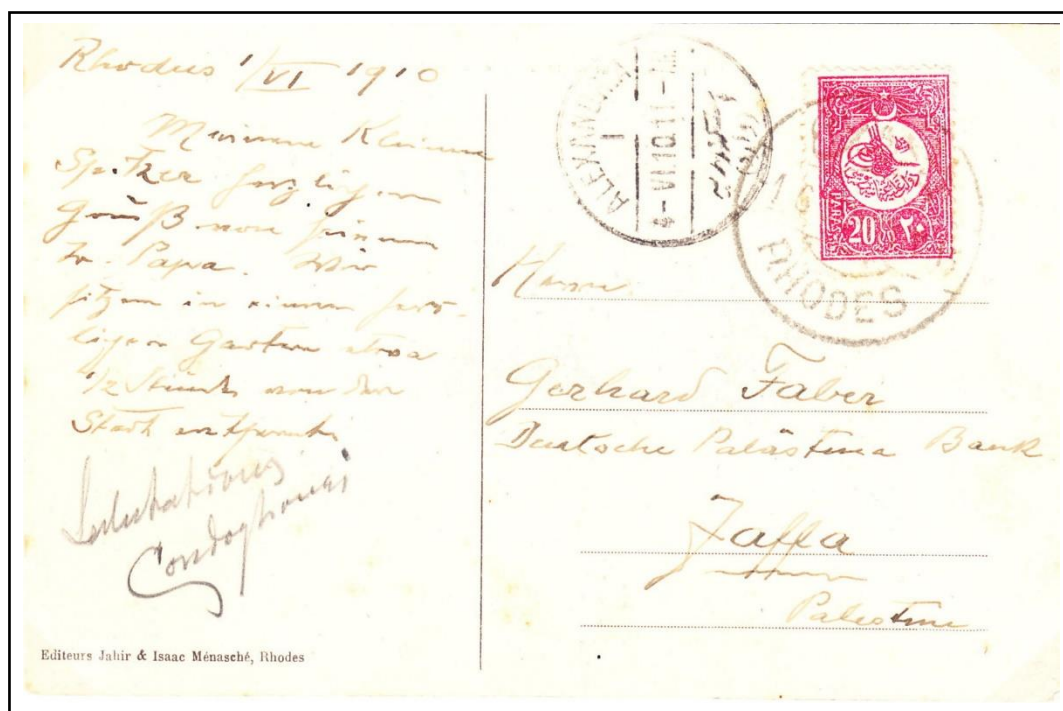 Rhodus 1/VI 1910
Meinem Kleinen
Spitzer herzlichen
Gruß von seinem
tr. Papa. Wir
sitzen in einem herr-
lichen Garten etwa
1/2 Stunde von der
Stadt entfernt.
Salutations
Editeurs Jahir & Isaac Ménasché, Rhodes
ALEXANDRIA
I
1-VI 10
20
PARA
٢٠
RHODES
Herrn
Gerhard Faber
Deutsche Palästina Bank
Jaffa
Palestine